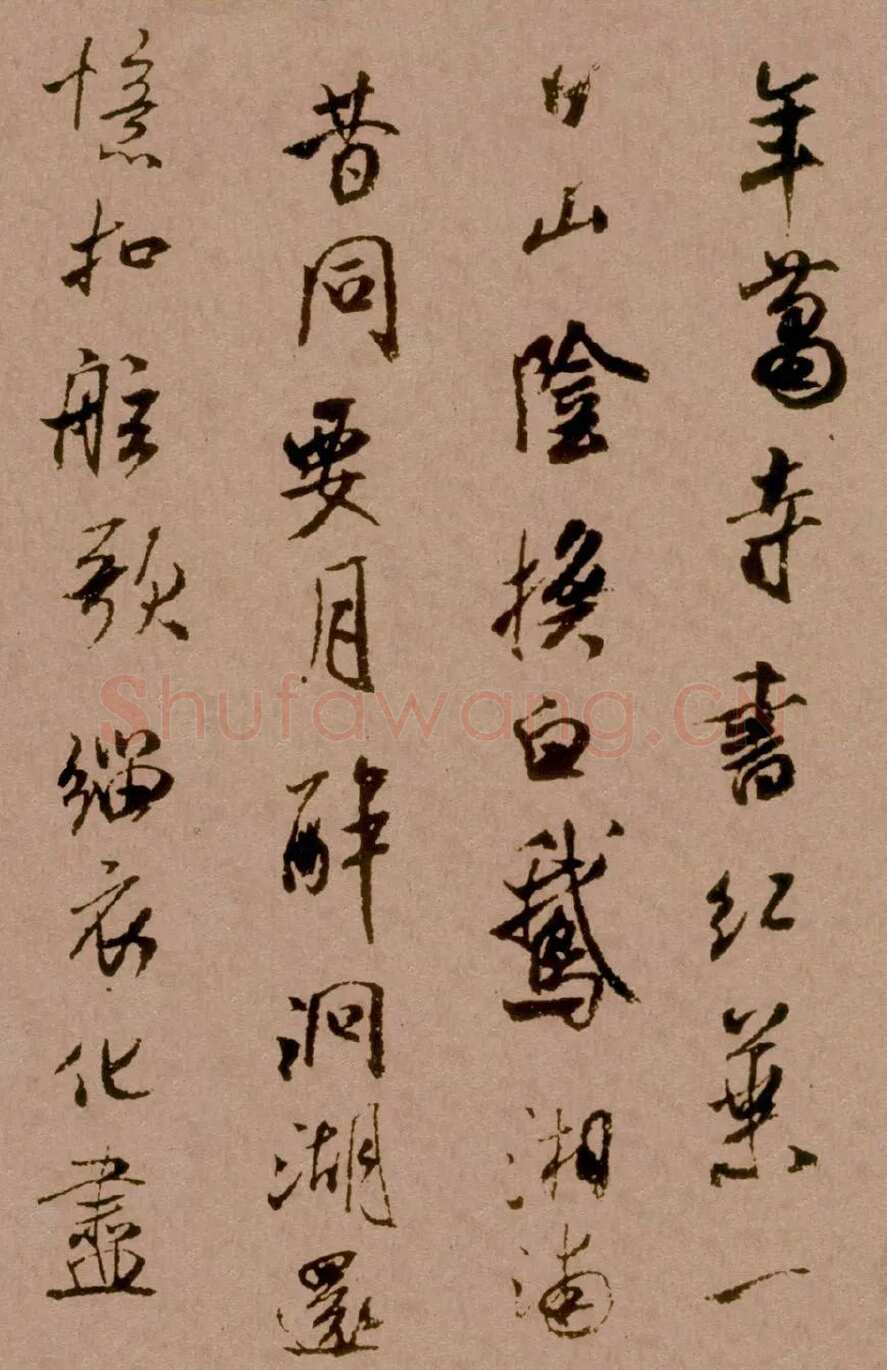 年蕭寺書紅葉一
日山陰換白鵝湘浦
昔同要月醉洞湖還
憶扣舷歌緇衣化盡
Shufawang.CN